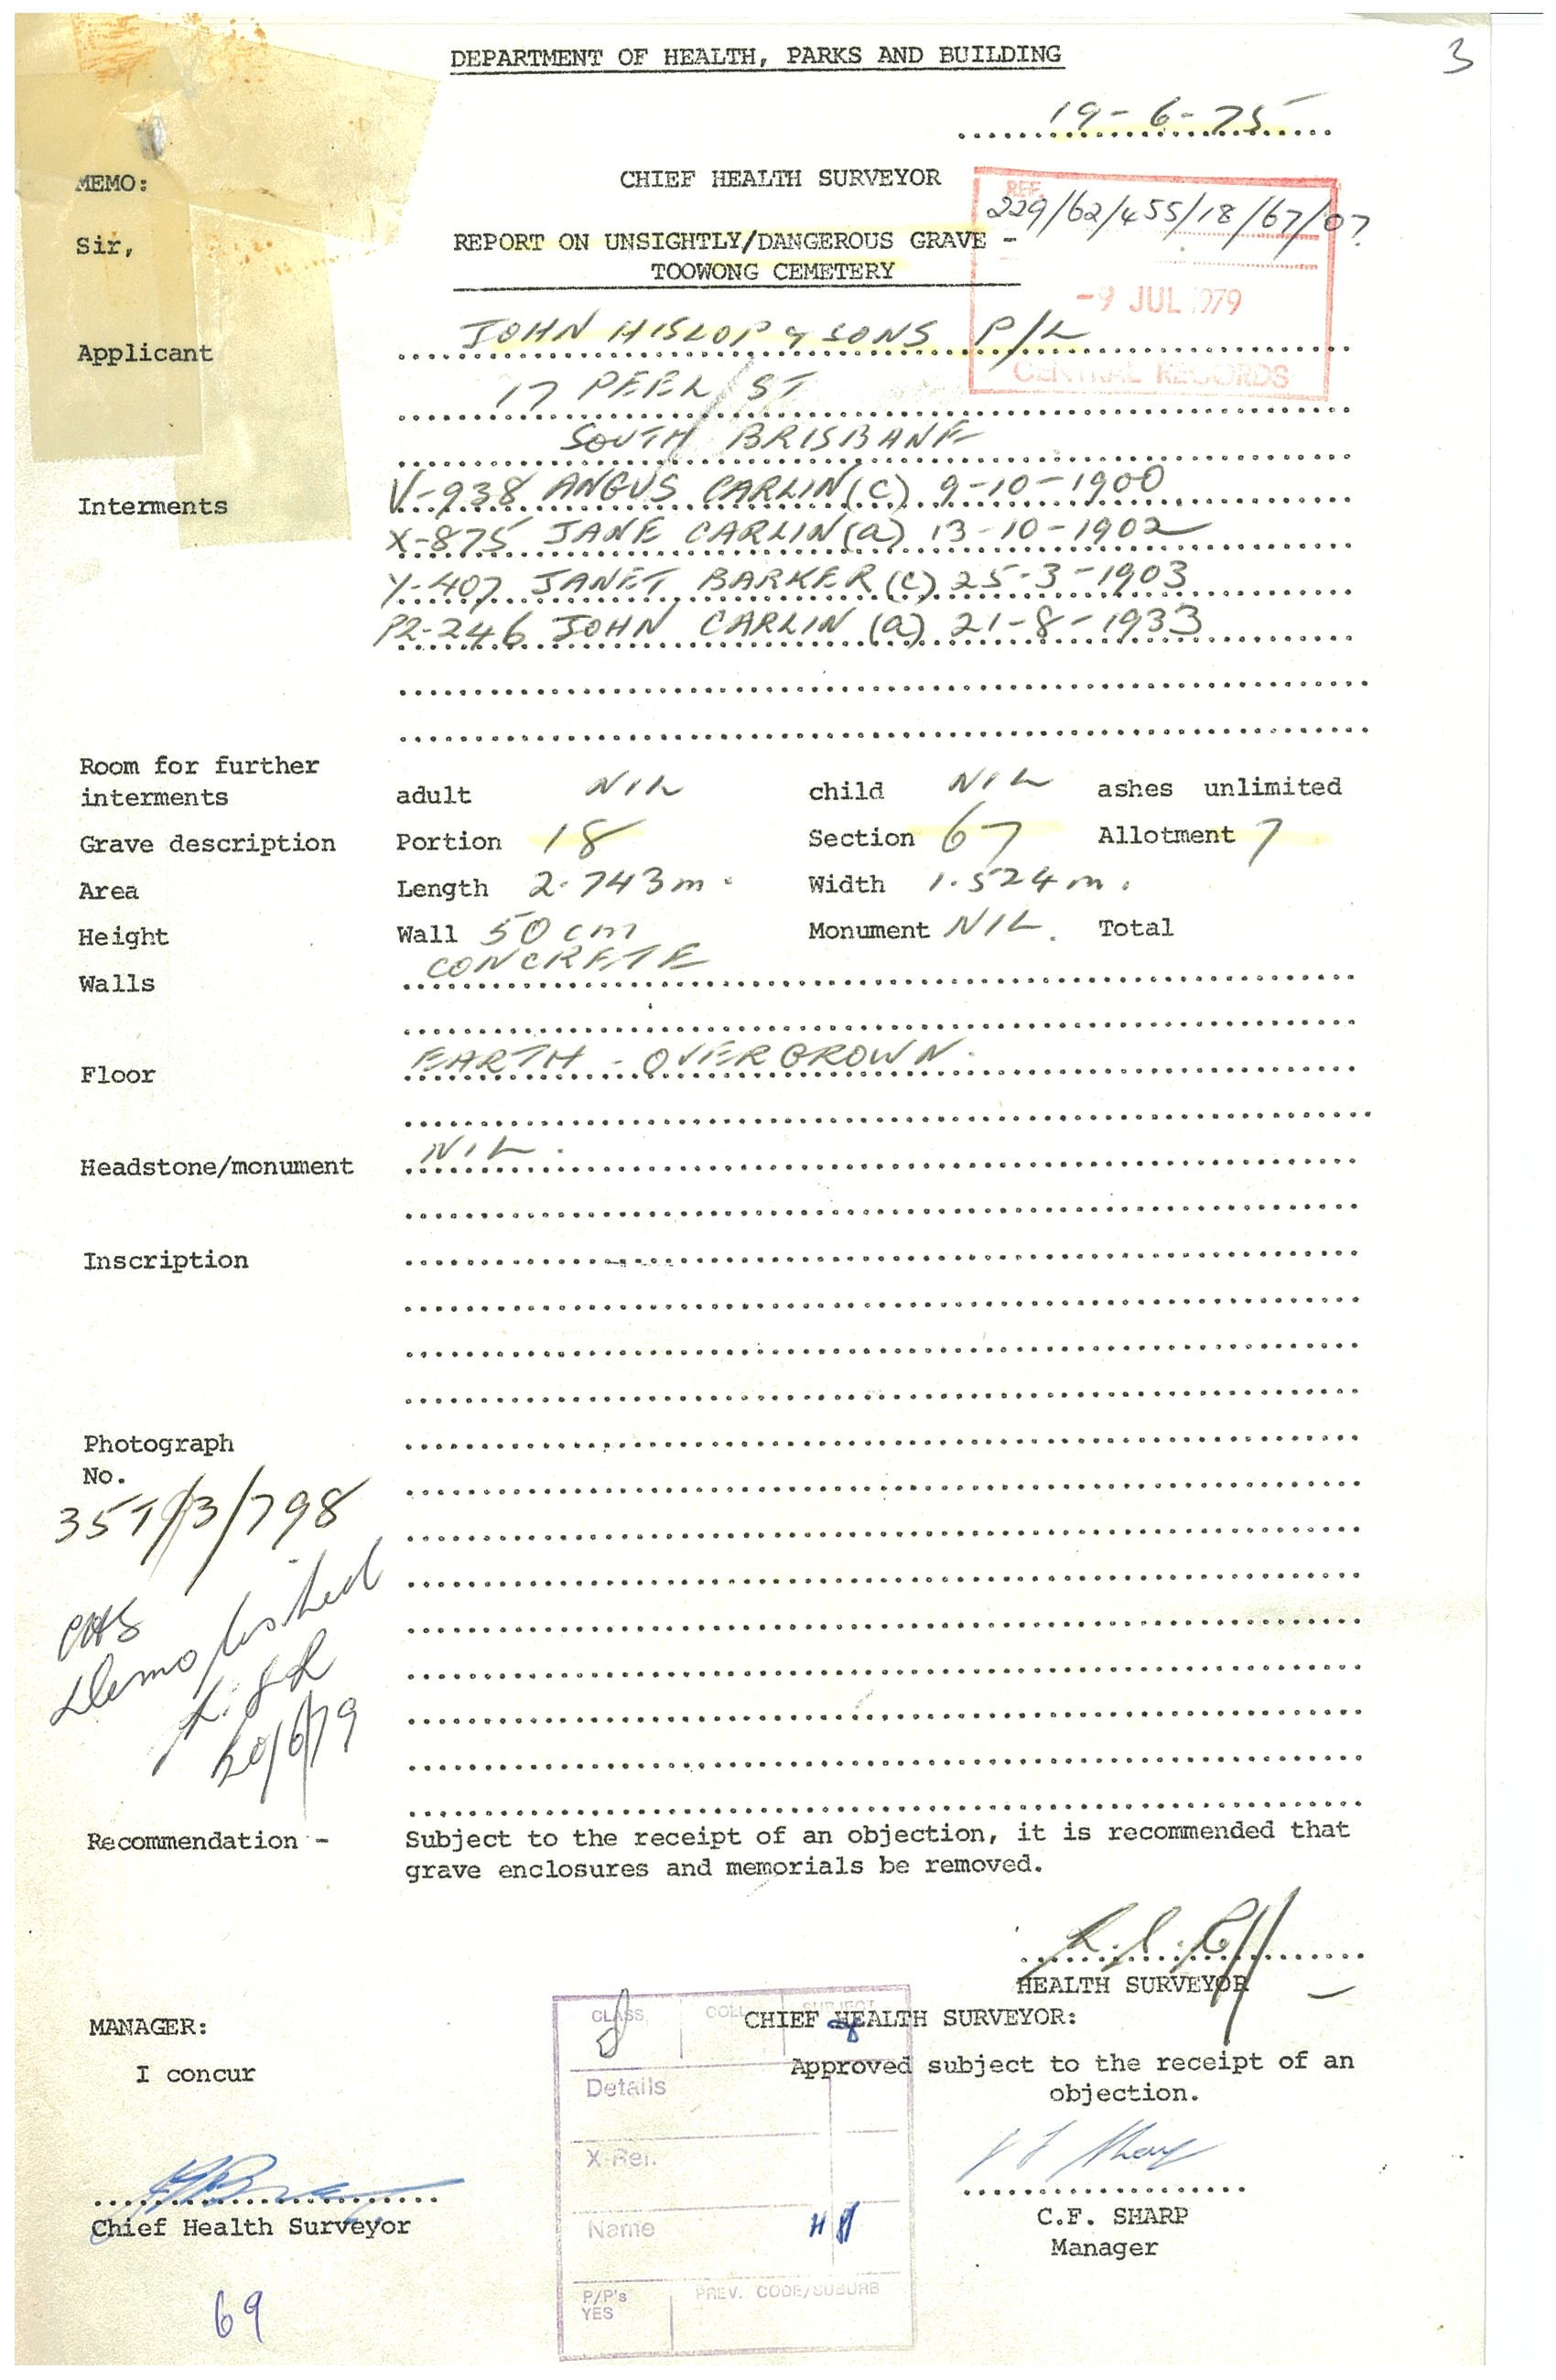 DEPARTMENT OF HEALTH, PARKS AND BUILDING
3
19-6-75
MEMO:
CHIEF HEALTH SURVEYOR
REF.
229/62/455/18/67/07
Sir,
REPORT ON UNSIGHTLY/DANGEROUS GRAVE -
TOOWONG CEMETERY
-9 JUL 1979
CENTRAL RECORDS
Applicant JOHN HISLOP & SONS P/L
17 PEEL ST
SOUTH BRISBANE
Interments V-938 ANGUS CARLIN (c) 9-10-1900
X-875 JANE CARLIN (a) 13-10-1902
Y-407 JANET BARKER (c) 25-3-1903
P2-246 JOHN CARLIN (a) 21-8-1933
Room for further
interments adult NIL child NIL ashes unlimited
Grave description Portion 18 Section 67 Allotment 7
Area Length 2.743m. Width 1.524m.
Height Wall 50cm Monument NIL. Total
Walls CONCRETE
Floor EARTH - OVERGROWN.
Headstone/monument NIL.
Inscription
Photograph
No.
357/3/798
CHS
Demolished
20/6/79
Recommendation - Subject to the receipt of an objection, it is recommended that
grave enclosures and memorials be removed.
HEALTH SURVEYOR
MANAGER:
CHIEF HEALTH SURVEYOR:
I concur
Approved subject to the receipt of an
objection.
Chief Health Surveyor
C.F. SHARP
Manager
CLASS COLL SUBJECT
Details
X-Ref.
Name
P/P's
YES
PREV. CODE/SUBURB
69